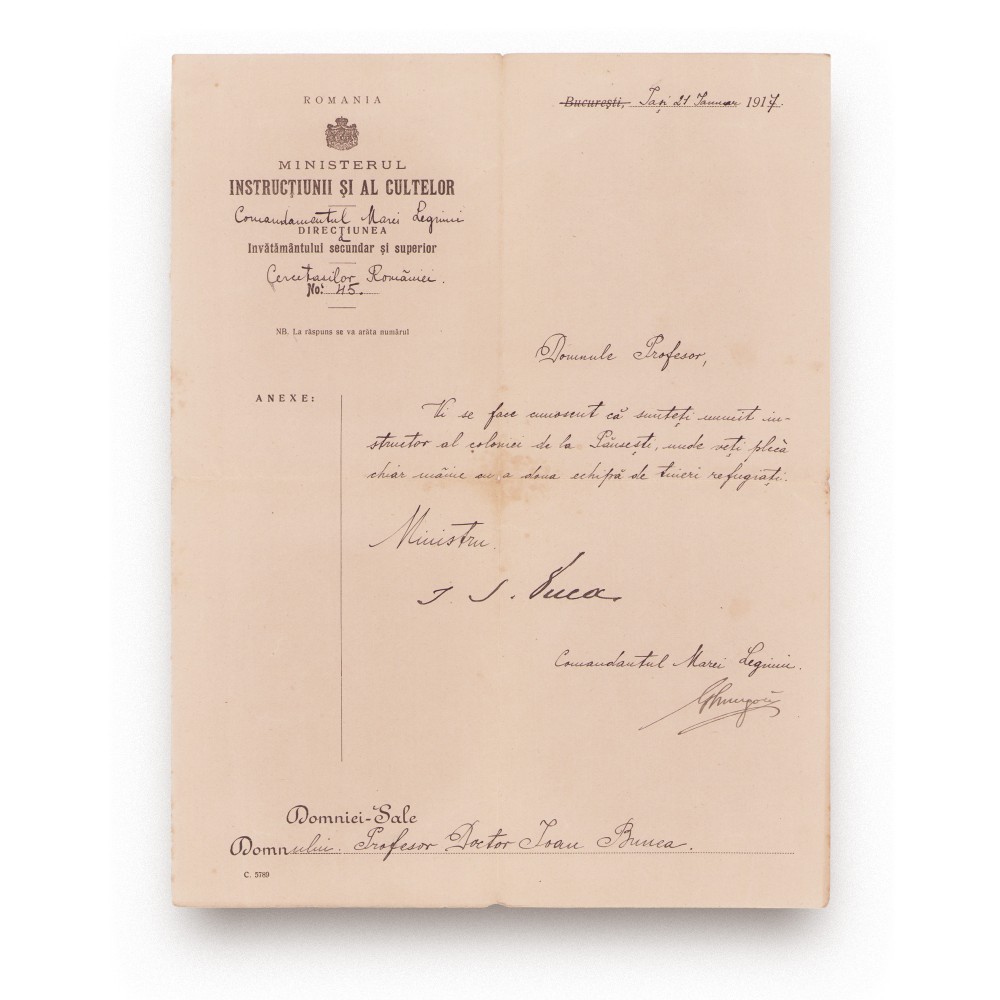 ROMANIA
București, Iași 21 Ianuar 1917.
MINISTERUL
INSTRUCȚIUNII ȘI AL CULTELOR
Comandamentul Marei Legiuni
DIRECȚIUNEA
Invătământului secundar și superior
Cercetașilor României.
No. 45.
NB. La răspuns se va arăta numărul
Domnule Profesor,
ANEXE:
Vi se face cunoscut că sunteți numit in-
structor al coloniei de la Păusești, unde veți plecà
chiar mâine cu a doua echipă de tineri refugiați.
Ministru
Comandantul Marei Legiuni.
Domniei-Sale
Domnului Profesor Doctor Ioan Bunea.
C. 5789